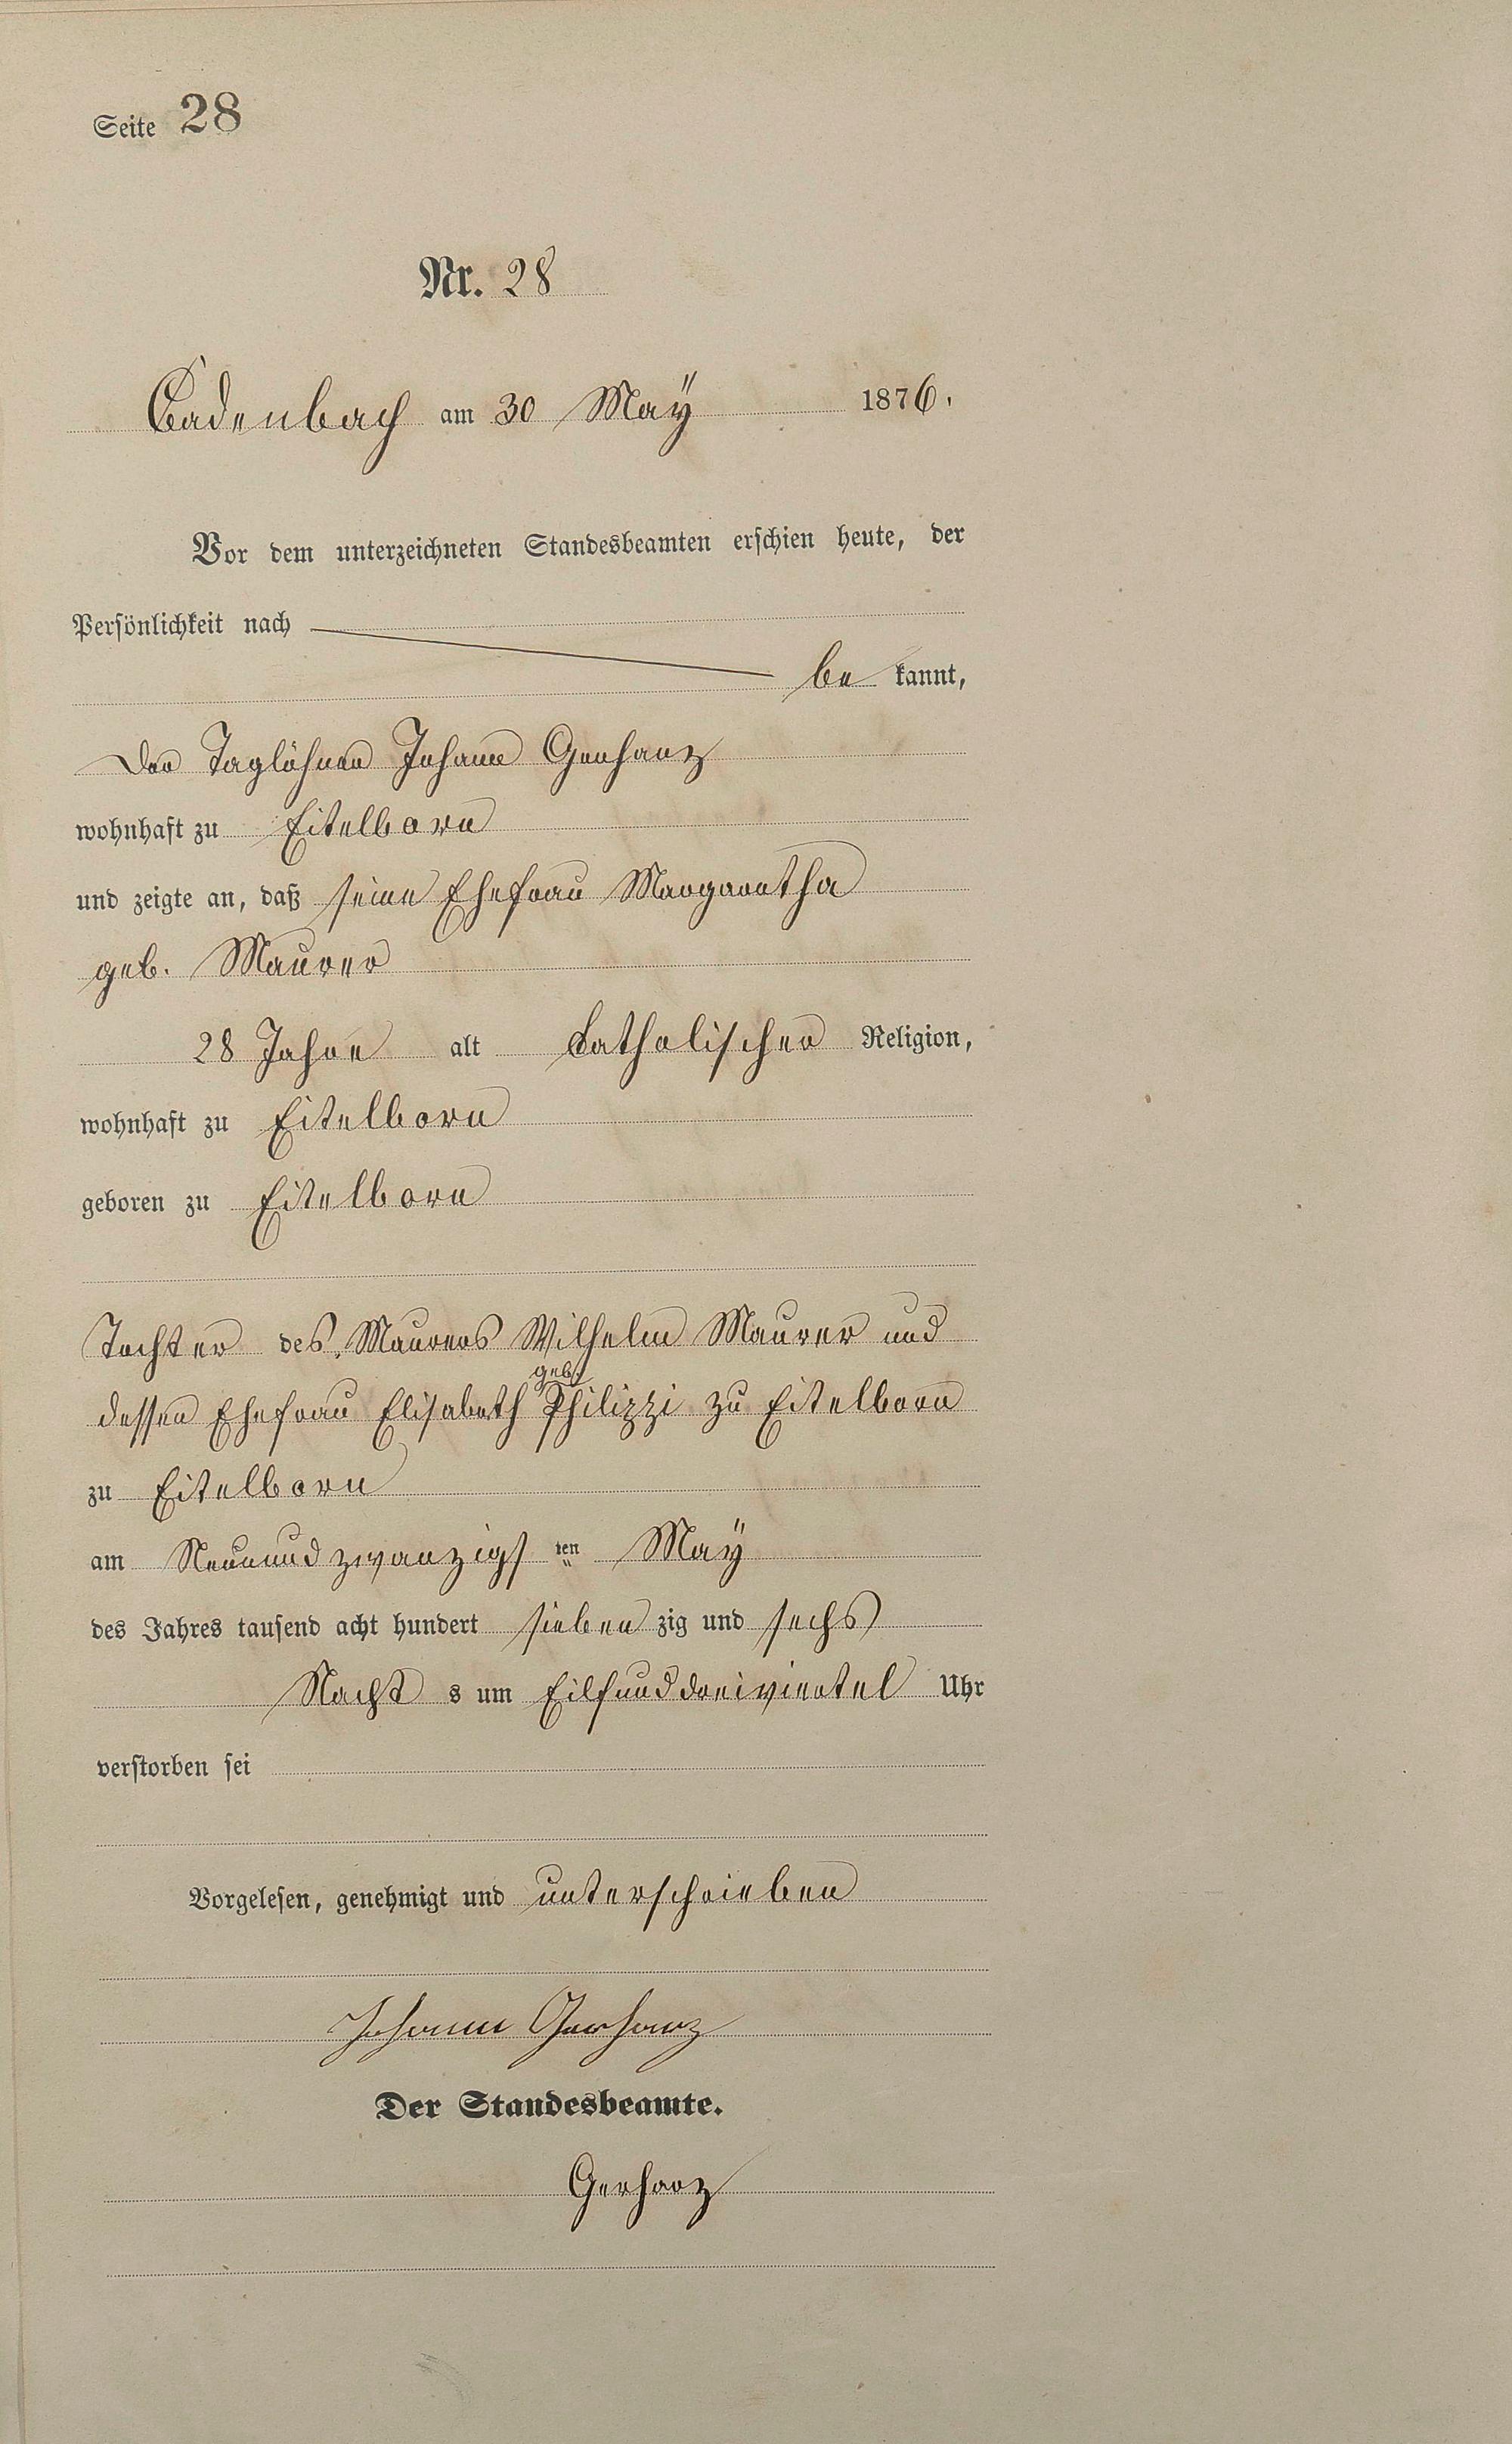 Seite 28
Nr. 28
Cadenbach am 30 Maÿ 1876.
Vor dem unterzeichneten Standesbeamten erschien heute, der
Persönlichkeit nach
be kannt,
der Taglöhner Johann Gerharz
wohnhaft zu Eitelborn
und zeigte an, daß seine Ehefrau Margaretha
geb. Maurer
28 Jahre alt katholischer Religion,
wohnhaft zu Eitelborn
geboren zu Eitelborn
Tochter des Maurers Wilhelm Maurer und
geb.
dessen Ehefrau Elisabeth Philippi zu Eitelborn
zu Eitelborn
am Neunundzwanzigs ten Maÿ
des Jahres tausend acht hundert sieben zig und sechs
Nacht s um Eilfunddreiviertel Uhr
verstorben sei
Vorgelesen, genehmigt und unterschrieben
Johann Gerharz
Der Standesbeamte.
Gerharz